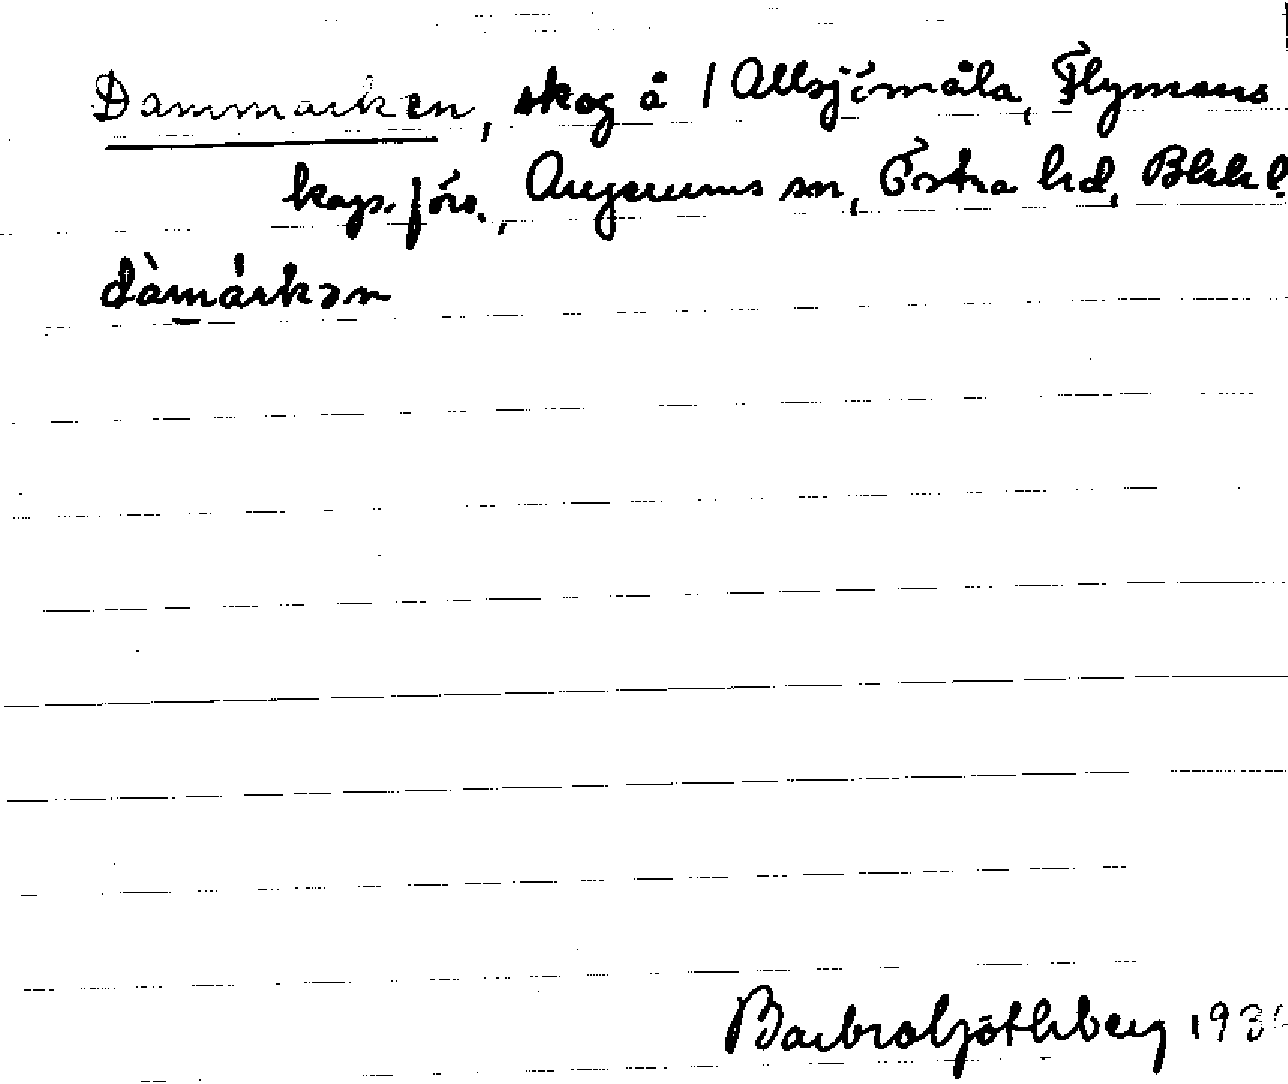 Dammarken, skog å 1 Allsjömåla, Flymens
kap. förs., Augerums sn, Östra hd, Blek l.
dàmárkən
Barbro Götlberg 193